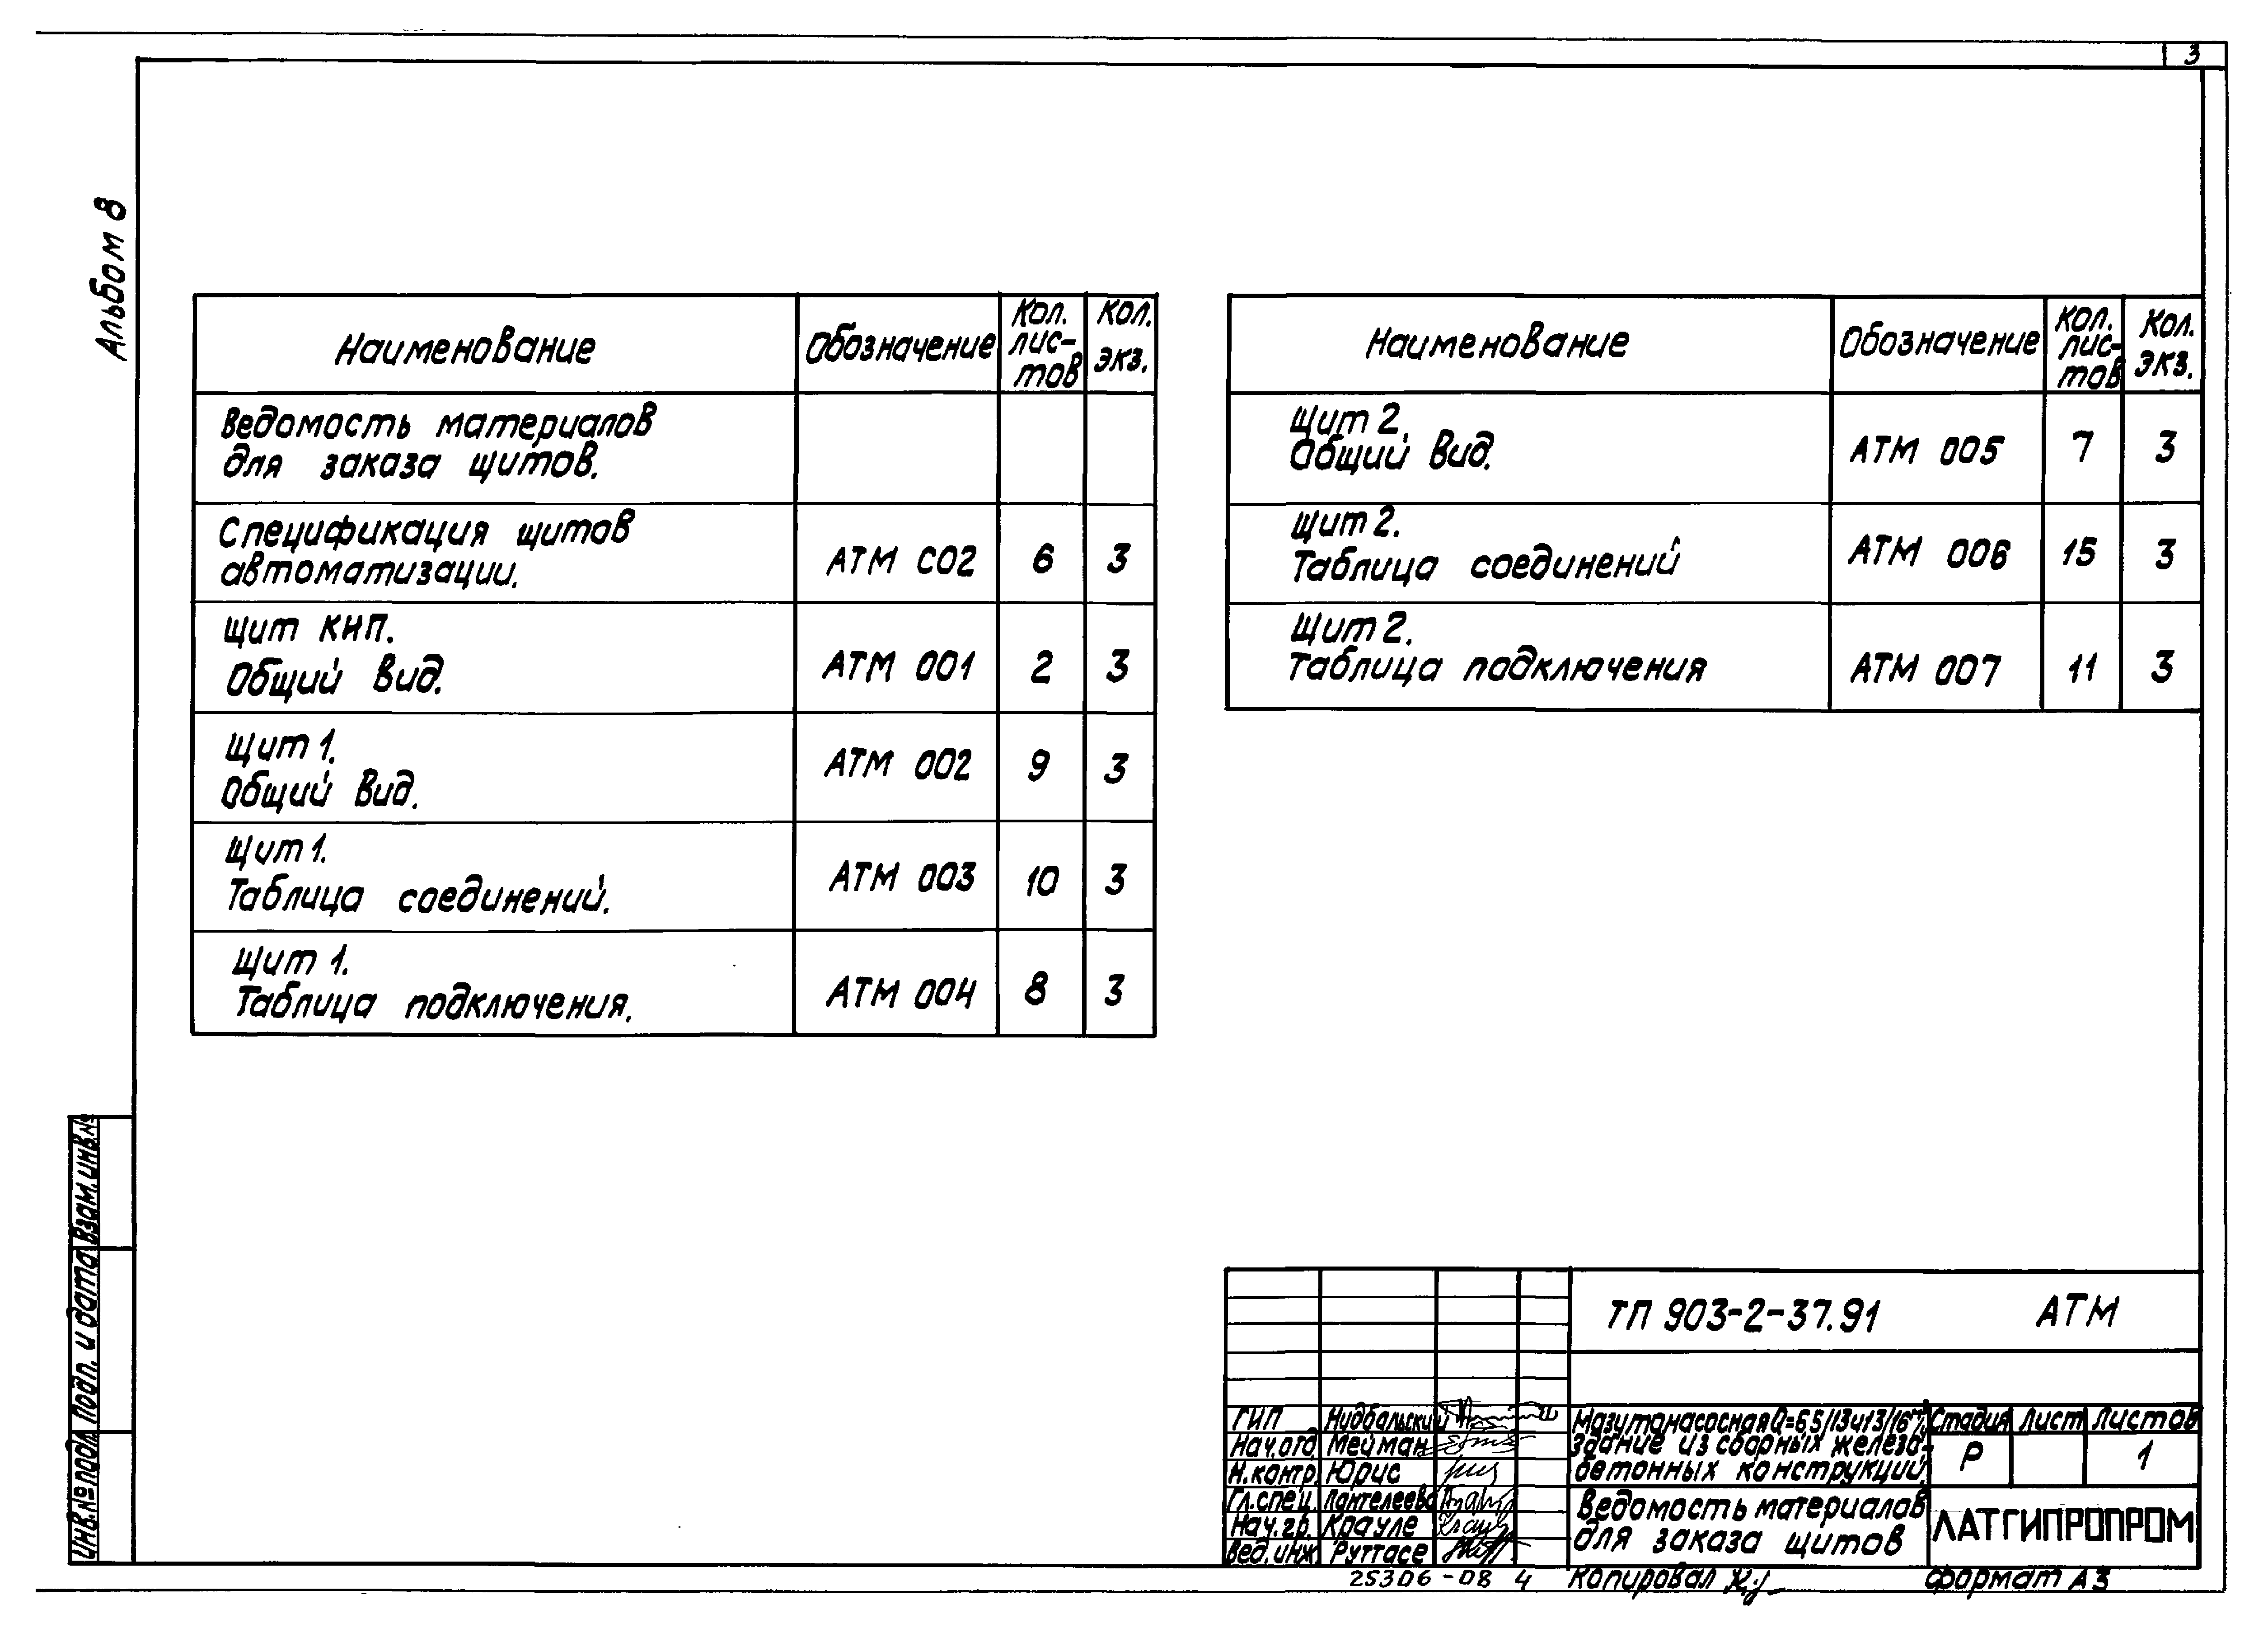 3
Альбом 8
Наименование Обозначение Кол. лис- тов Кол. экз.
Ведомость материалов
для заказа щитов.
Спецификация щитов
автоматизации. АТМ С02 6 3
Щит КИП.
Общий вид. АТМ 001 2 3
Щит 1.
Общий вид. АТМ 002 9 3
Щит 1.
Таблица соединений. АТМ 003 10 3
Щит 1.
Таблица подключения. АТМ 004 8 3
Наименование Обозначение Кол. лис- тов Кол. экз.
Щит 2.
Общий вид. АТМ 005 7 3
Щит 2.
Таблица соединений АТМ 006 15 3
Щит 2.
Таблица подключения АТМ 007 11 3
Инв.№ подл. Подп. и дата Взам. инв.№
ТП 903-2-37.91 АТМ
ГИП Нидбальский
Нач.отд. Мейман
Н.контр. Юрис
Гл.спец. Пантелеева
Нач.гр. Крауле
Вед.инж. Руттасе
Мазутонасосная Q=6,5/13и13/16
Здание из сборных железо-
бетонных конструкций
Стадия Лист Листов
Р 1
Ведомость материалов
для заказа щитов
ЛАТГИПРОПРОМ
25306-08 4 Копировал Формат А3